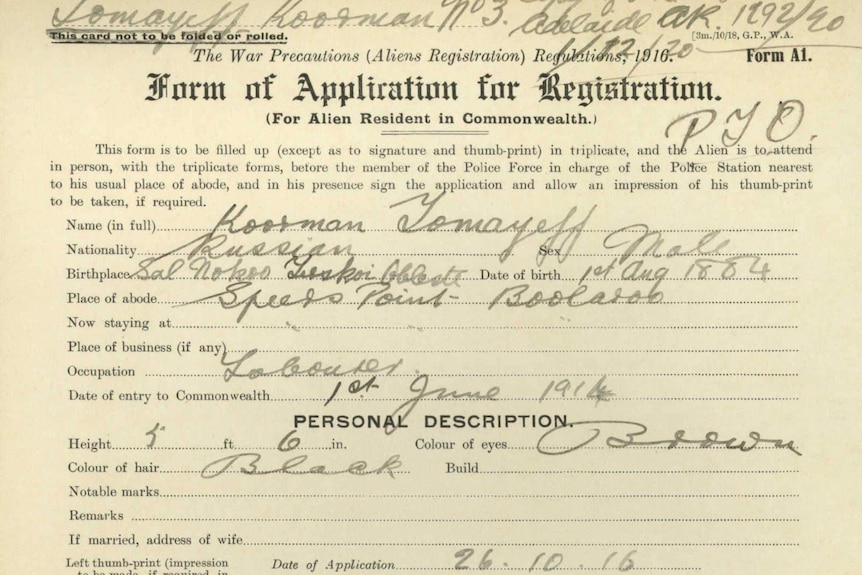 Tomayeff Koorman No 3. Adelaide AR. 1292/20
This card not to be folded or rolled.
[3m./10/18, G.P., W.A.
1/12/20
The War Precautions (Aliens Registration) Regulations, 1916. Form A1.
Form of Application for Registration.
(For Alien Resident in Commonwealth.)
P.T.O.
This form is to be filled up (except as to signature and thumb-print) in triplicate, and the Alien is to attend
in person, with the triplicate forms, before the member of the Police Force in charge of the Police Station nearest
to his usual place of abode, and in his presence sign the application and allow an impression of his thumb-print
to be taken, if required.
Name (in full) Koorman Tomayeff
Nationality Russian Sex Male
Birthplace Sal Date of birth 1st Aug 1884
Place of abode Speers Point - Boolaroo
Now staying at
Place of business (if any)
Occupation Labourer.
Date of entry to Commonwealth 1st June 1914
PERSONAL DESCRIPTION.
Height 5 ft 6 in. Colour of eyes Brown
Colour of hair Black Build
Notable marks
Remarks
If married, address of wife
Left thumb-print (impression Date of Application 26.10.16
to be made, if required, in